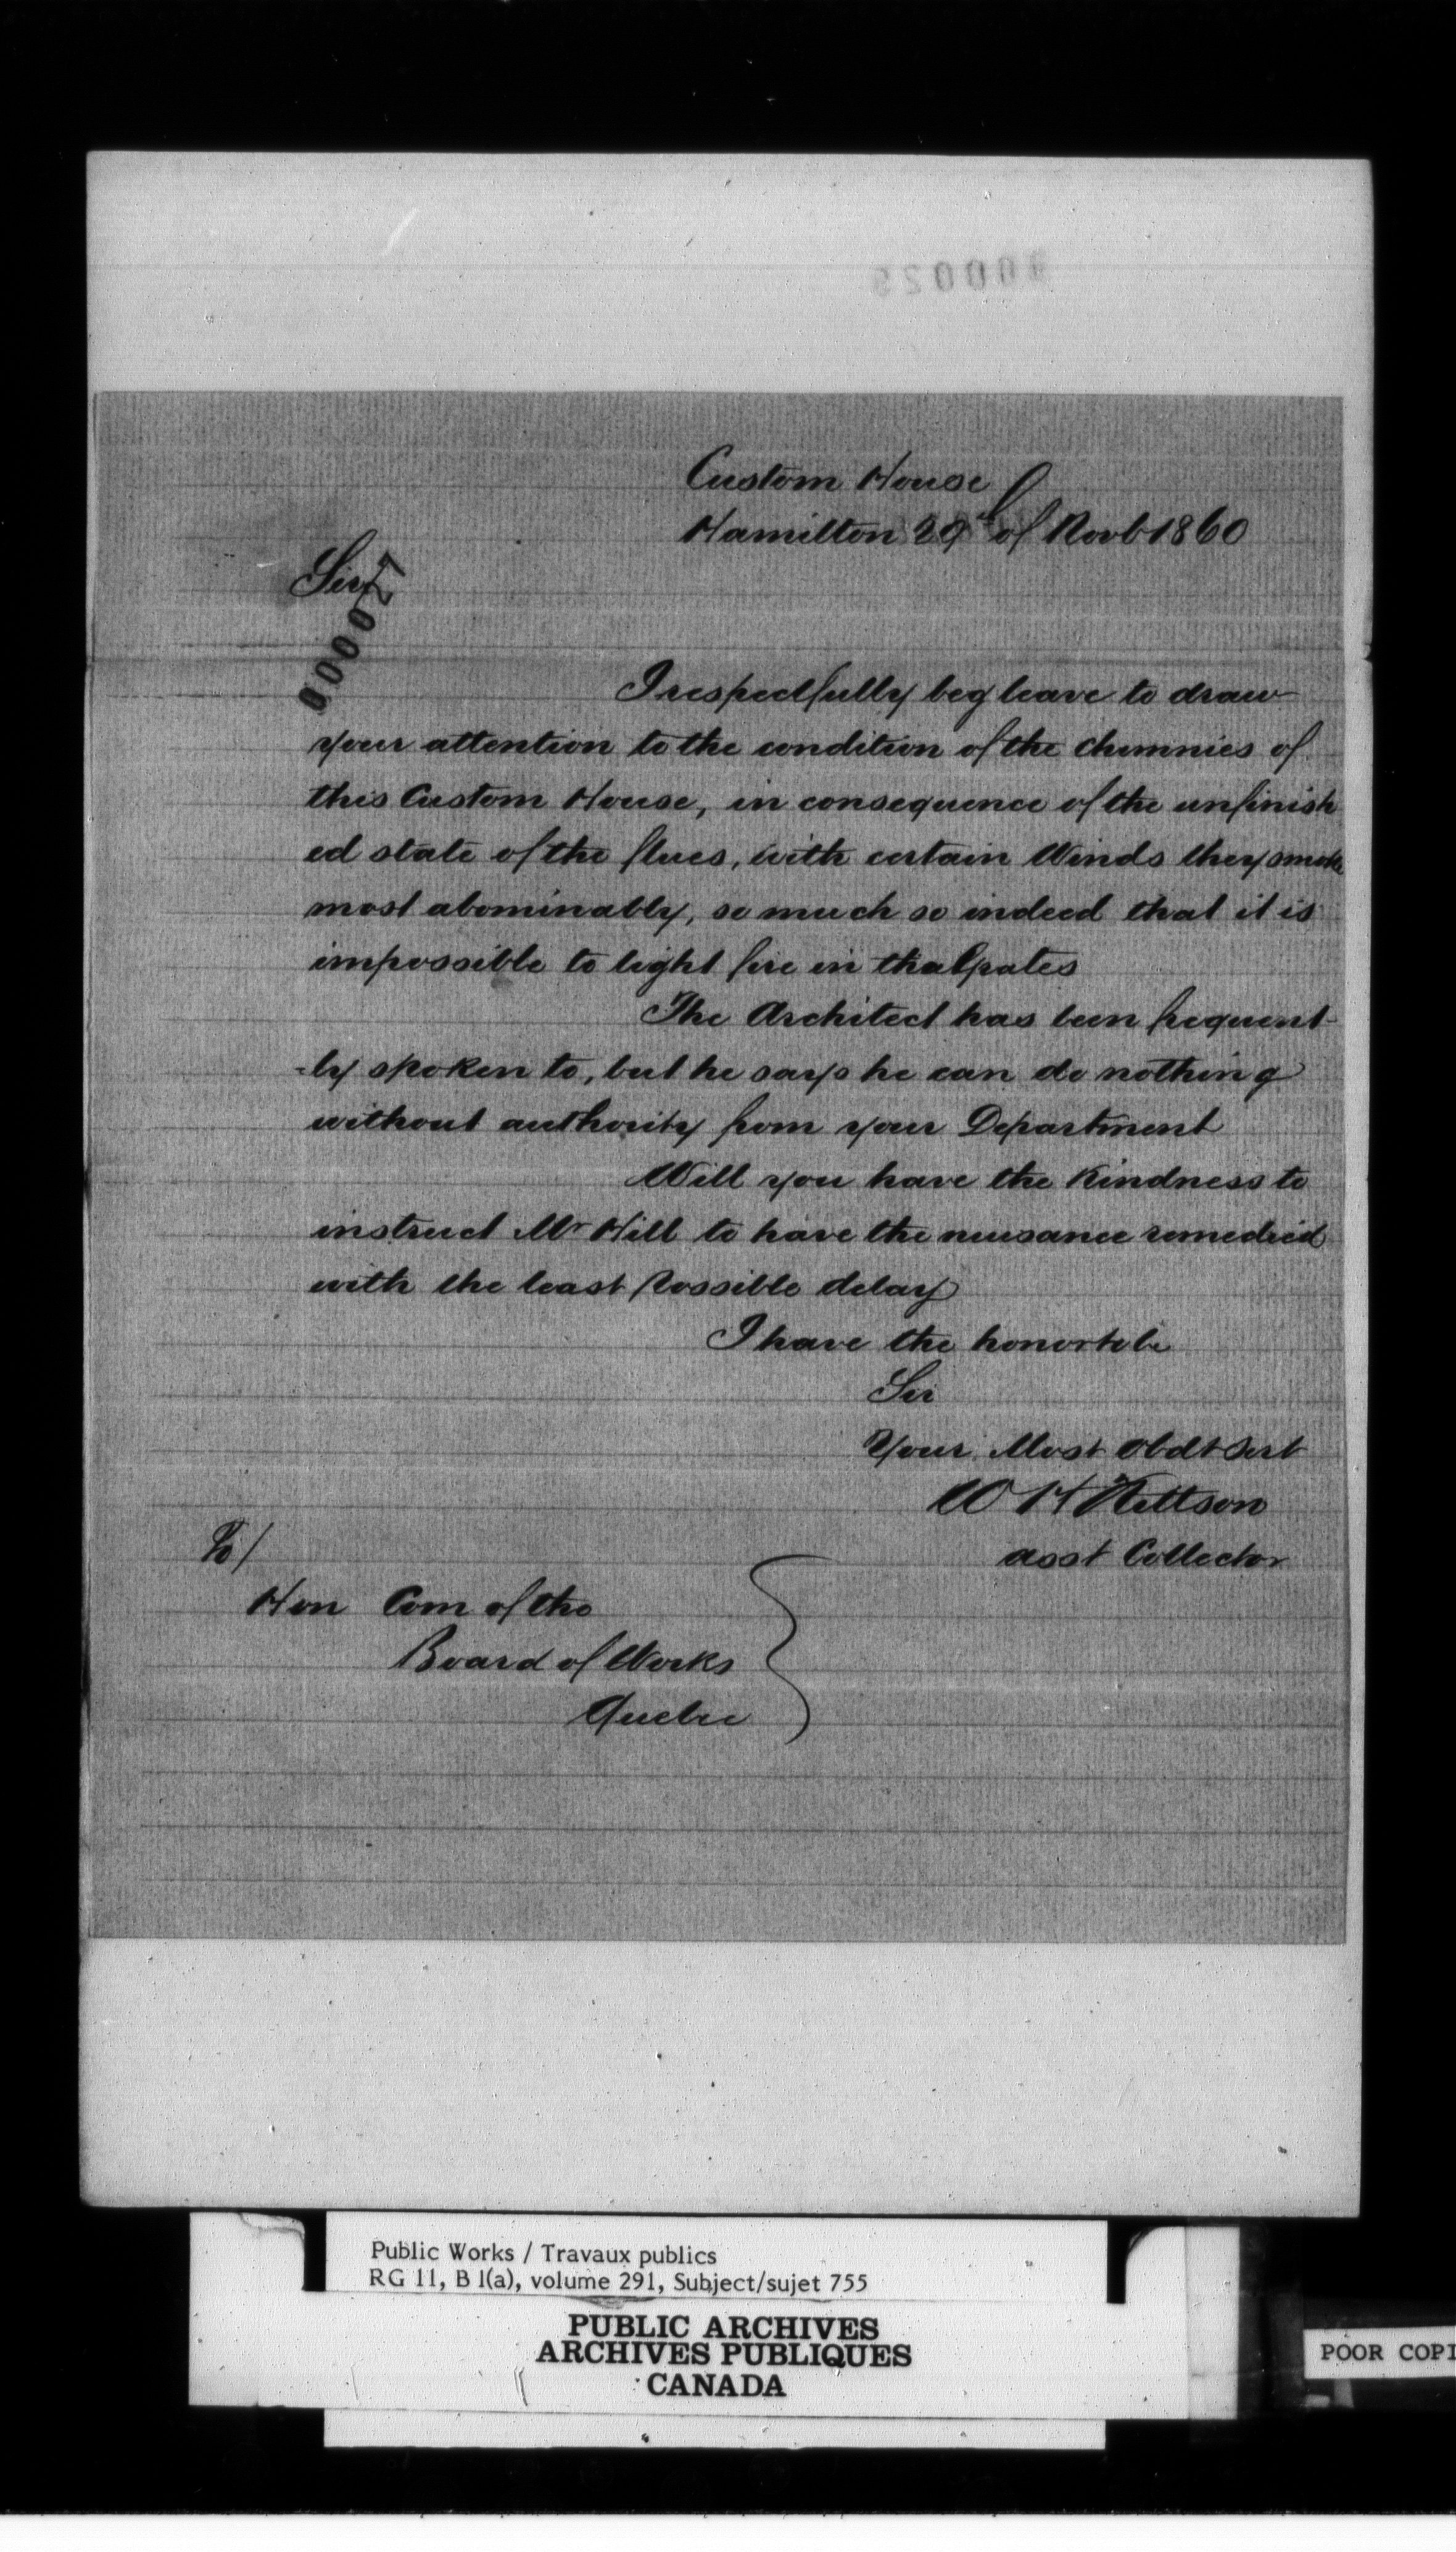 Custom House
Hamilton 29th of Novb 1860
Sir
000027
I respectfully beg leave to draw
your attention to the condition of the chimnies of
this Custom House, in consequence of the unfinish
ed state of the flues, with certain Winds they smoke
most abominably, so much so indeed that it is
impossible to light fire in the Grates
The Architect has been frequent-
-ly spoken to, but he says he can do nothing
without authority from your Department
Will you have the Kindness to
instruct Mr Hill to have the nuisance remedied
with the least Possible delay
I have the honor to be
Sir
Your Most Obdt Servt
W H Kittson
asst Collector
To/
Hon Com of the
Board of Works
Quebec
Public Works / Travaux publics
RG 11, B 1(a), volume 291, Subject/sujet 755
PUBLIC ARCHIVES
ARCHIVES PUBLIQUES
CANADA
POOR COPI